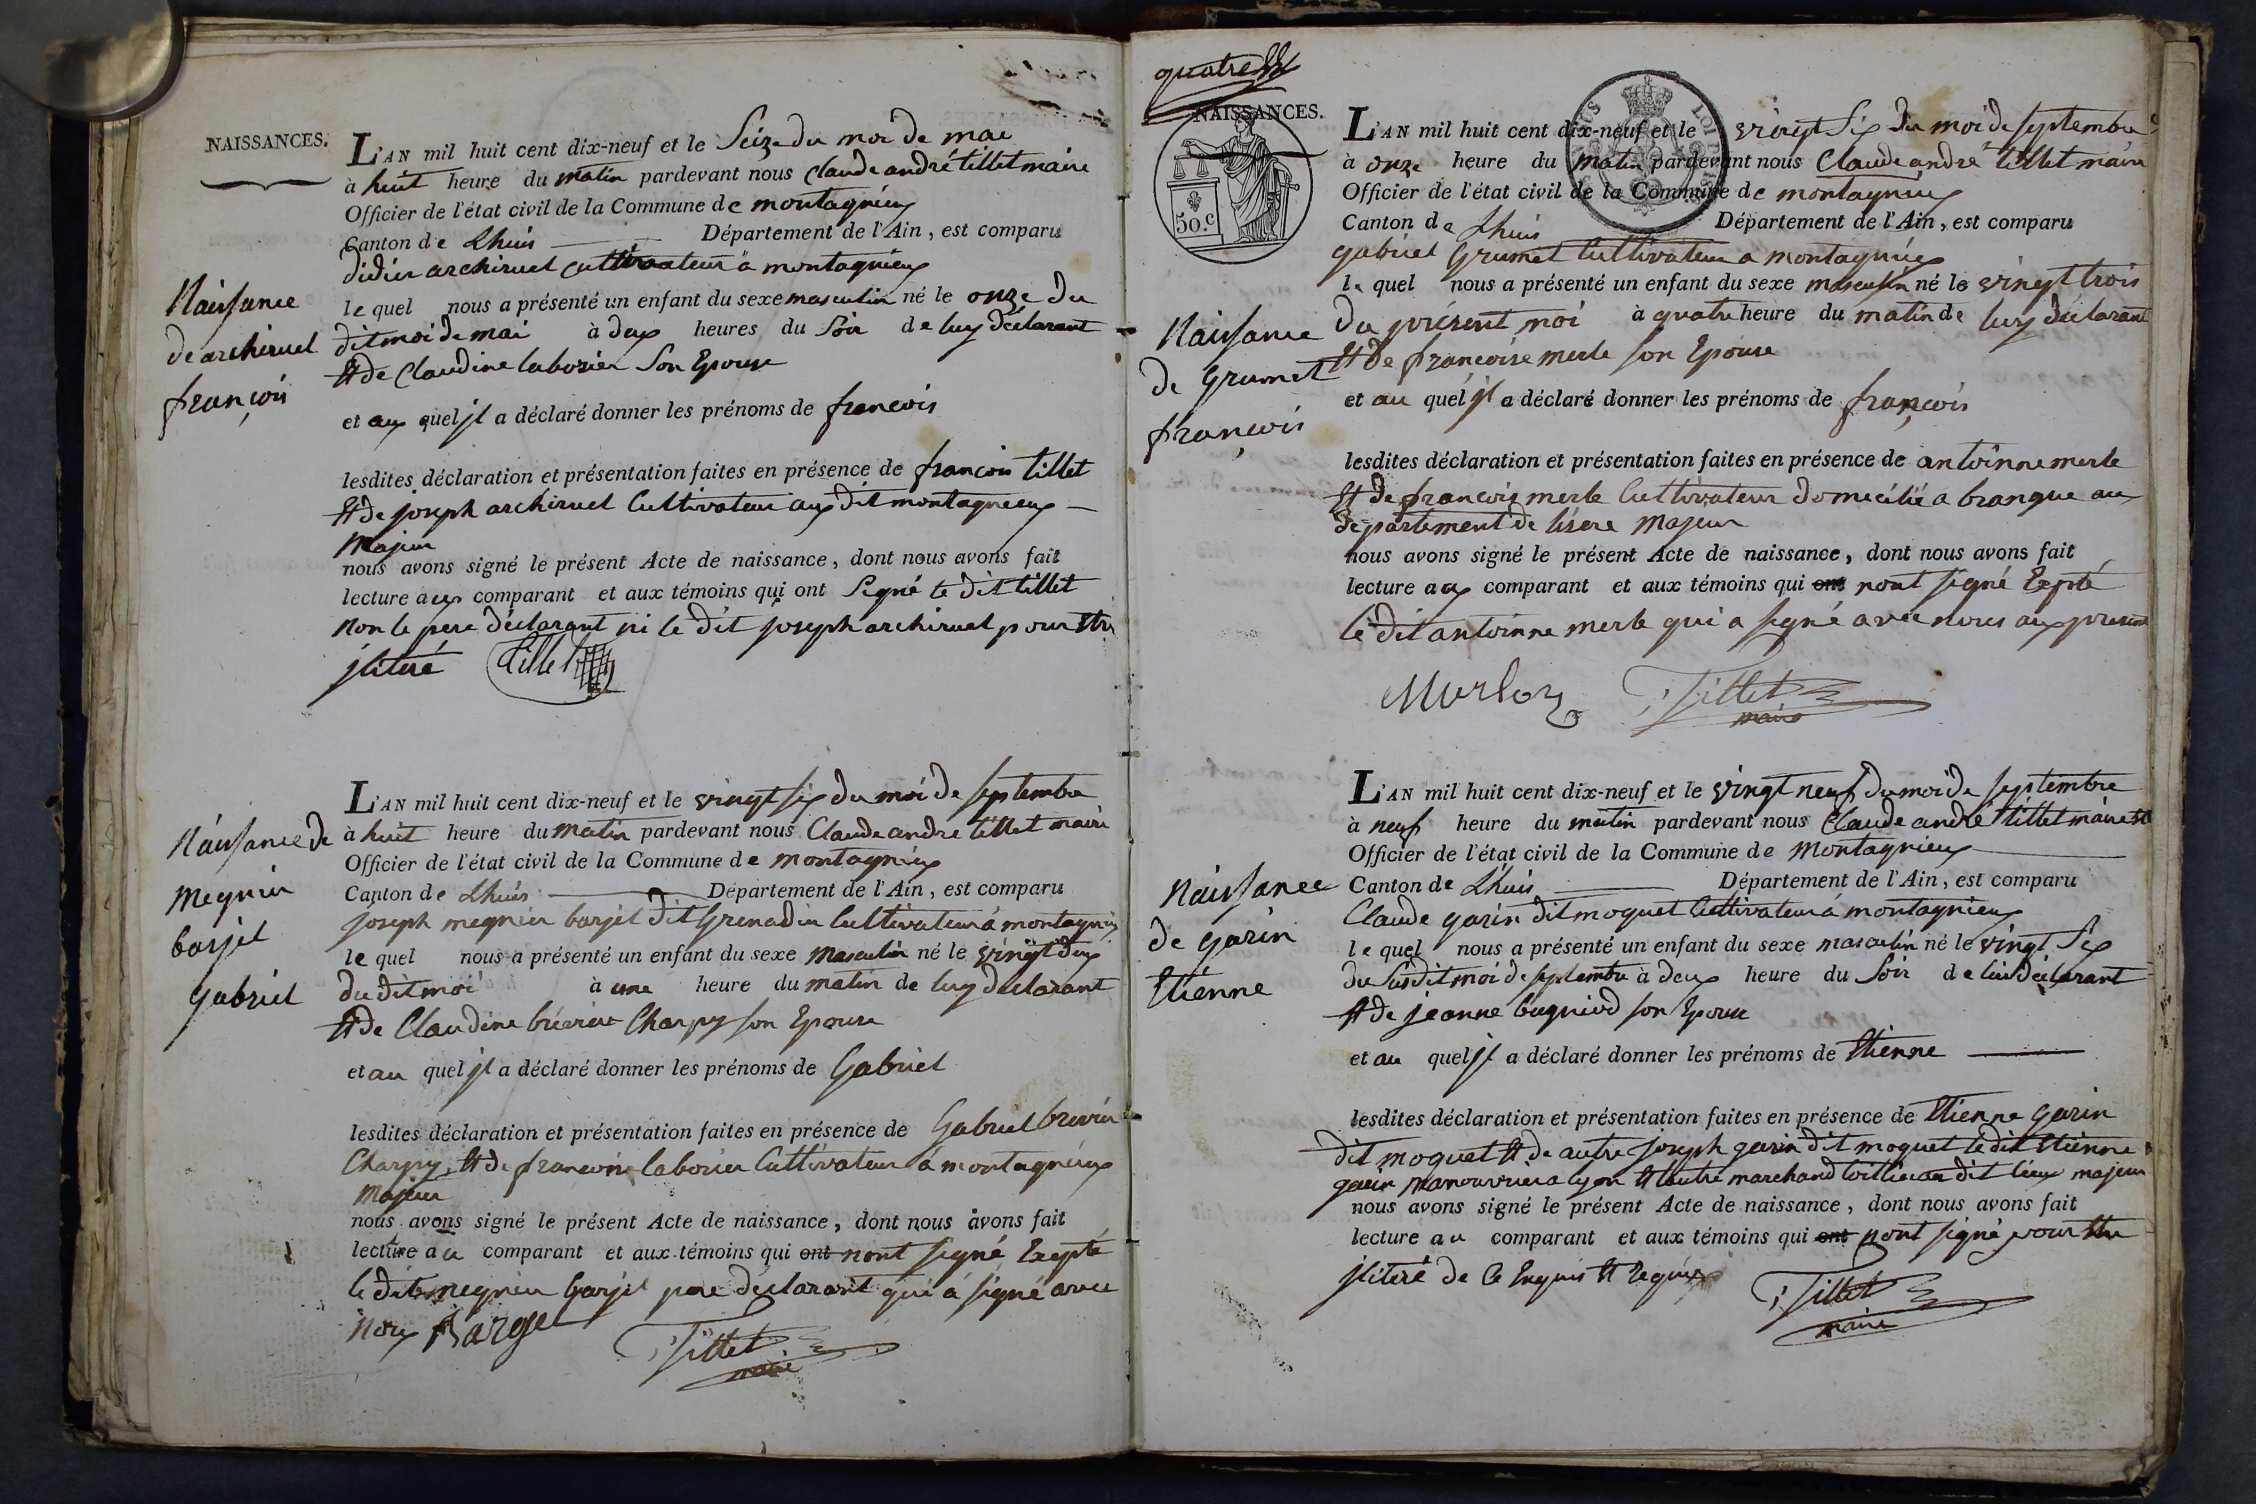 NAISSANCES.
L'AN mil huit cent dix-neuf et le Seize du moi de mai
à huit heure du matin pardevant nous Claude andré tillet maire
Officier de l'état civil de la Commune de montagnieux
Canton de Lhuis Département de l'Ain, est comparu
didier archiruel cultivateur a montagnieux
le quel nous a présenté un enfant du sexe masculin né le onze du
dit moi de mai à deux heures du Soir de luy déclarant
Et de Claudine laborier Son Epouse
et aux quel jl a déclaré donner les prénoms de francois
lesdites déclaration et présentation faites en présence de francois tillet
Et de joseph archiruel Cultivateur aux dit montagnieux
Majeur
nous avons signé le présent Acte de naissance, dont nous avons fait
lecture aux comparant et aux témoins qui ont Signé le dit tillet
non le pere déclarant ni le dit joseph archiruel pour Etre
jliteré Tillet
Naissance
de archiruel
françois
L'AN mil huit cent dix-neuf et le vingt six du moi de septembre
à huit heure du matin pardevant nous Claude andré tillet maire
Officier de l'état civil de la Commune de montagnieux
Canton de Lhuis Département de l'Ain, est comparu
joseph megnin barjel dit Grenadier Cultivateur á montagnieux
le quel nous a présenté un enfant du sexe masculin né le vingt deux
du dit moi à une heure du matin de luy declarant
Et de Claudine Charpy son Epouse
et au quel jl a déclaré donner les prénoms de Gabriel
lesdites déclaration et présentation faites en présence de Gabriel
Charpy Et de francois laborier Cultivateur á montagnieux
Majeur
nous avons signé le présent Acte de naissance, dont nous avons fait
lecture au comparant et aux témoins qui ont nont signé Exepté
le dit megnin barjel pere déclarant qui á signé avec
nous Barge Tillet
maire
Naissance de
megnin
barjel
gabriel
quatre
NAISSANCES.
50.c
L'AN mil huit cent dix-neuf et le vingt Six du moi de septembre
à onze heure du matin pardevant nous Claude andré tillet maire
Officier de l'état civil de la Commune de montagnieux
Canton de Lhuis Département de l'Ain, est comparu
gabriel Grumet Cultivateur a montagnieux
le quel nous a présenté un enfant du sexe masculin né le vingt trois
du présent moi à quatre heure du matin de luy déclarant
Et de francoise merle son Epouse
et au quel jl a déclaré donner les prénoms de françois
lesdites déclaration et présentation faites en présence de antoinne merle
Et de francois merle Cultivateur domecilié a brangue au
departement de lisere Majeur
nous avons signé le présent Acte de naissance, dont nous avons fait
lecture aux comparant et aux témoins qui ont nont signé Exepté
le dit antoinne merle qui a signé avec nous aux present
Tillet
maire
Naissance
de Grumet
françois
L'AN mil huit cent dix-neuf et le vingt neuf du moi de septembre
à neuf heure du matin pardevant nous Claude andré tillet maire
Officier de l'état civil de la Commune de Montagnieux
Canton de Lhuis Département de l'Ain, est comparu
Claude garin dit moquet Cultivateur á montagnieux
le quel nous a présenté un enfant du sexe masculin né le vingt Six
du Susdit moi de septembre à deux heure du Soir de lui déclarant
Et de jeanne bugniod son Epouse
et au quel jl a déclaré donner les prénoms de Etienne
lesdites déclaration et présentation faites en présence de Etienne garin
dit moquet Et de autre joseph garin dit moquet le dit Etienne
garin manouvrier a lyon Et lautre marchand au dit lieux majeur
nous avons signé le présent Acte de naissance, dont nous avons fait
lecture au comparant et aux témoins qui ont nont signé pour Etre
jliteré de Ce Enquis Et Requis Tillet
maire
Naissance
de garin
Etienne